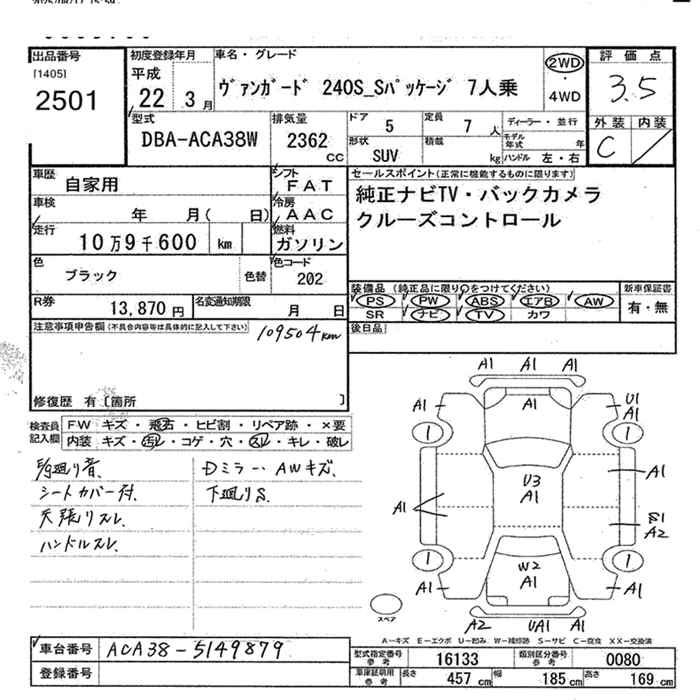 出品番号
[1405]
2501
初度登録年月
平成
22年 3月
車名・グレード
ヴァンガード 240S_Sパッケージ 7人乗
2WD
・
4WD
評価点
3.5
外装 内装
C
型式
DBA-ACA38W
排気量
2362
CC
ドア 5
定員 7人
形状 SUV
積載 kg
ディーラー・並行
モデル年式 年
ハンドル 左・右
車歴 自家用
シフト FAT
車検 年 月( 日)
冷房 AAC
走行 10万9千600 km
燃料 ガソリン
色 ブラック 色替
色コード 202
R券 13,870円
名変通知期限 月 日
セールスポイント(正常に機能するものに限ります)
純正ナビTV・バックカメラ
クルーズコントロール
装備品 (純正品に限り○をつけてください)
PS PW ABS エアB AW
SR ナビ TV カワ
新車保証書
有・無
後日品
注意事項申告欄(不具合内容等は具体的に記入して下さい)
109504km
修復歴 有〔箇所 〕
検査員記入欄
FW キズ・飛石・ヒビ割・リペア跡・×要
内装 キズ・汚レ・コゲ・穴・スレ・キレ・破レ
シートカバー付
天張リスレ
ハンドルスレ
Dミラー、AWキズ
下廻りS
A1 A1 A1
A1 A1 U1
A1
1 1
U3
A1
A1
A1
S1
A2
1 1
W2
A1
A1 A1
A2 UA1 A1
スペア
A-キズ E-エクボ U-凹み W-補修跡 S-サビ C-腐食 XX-交換済
車台番号 ACA38-5149879
登録番号
型式指定番号 参考 16133
類別区分番号 参考 0080
車庫証明用 参考 長さ 457cm 幅 185cm 高さ 169cm